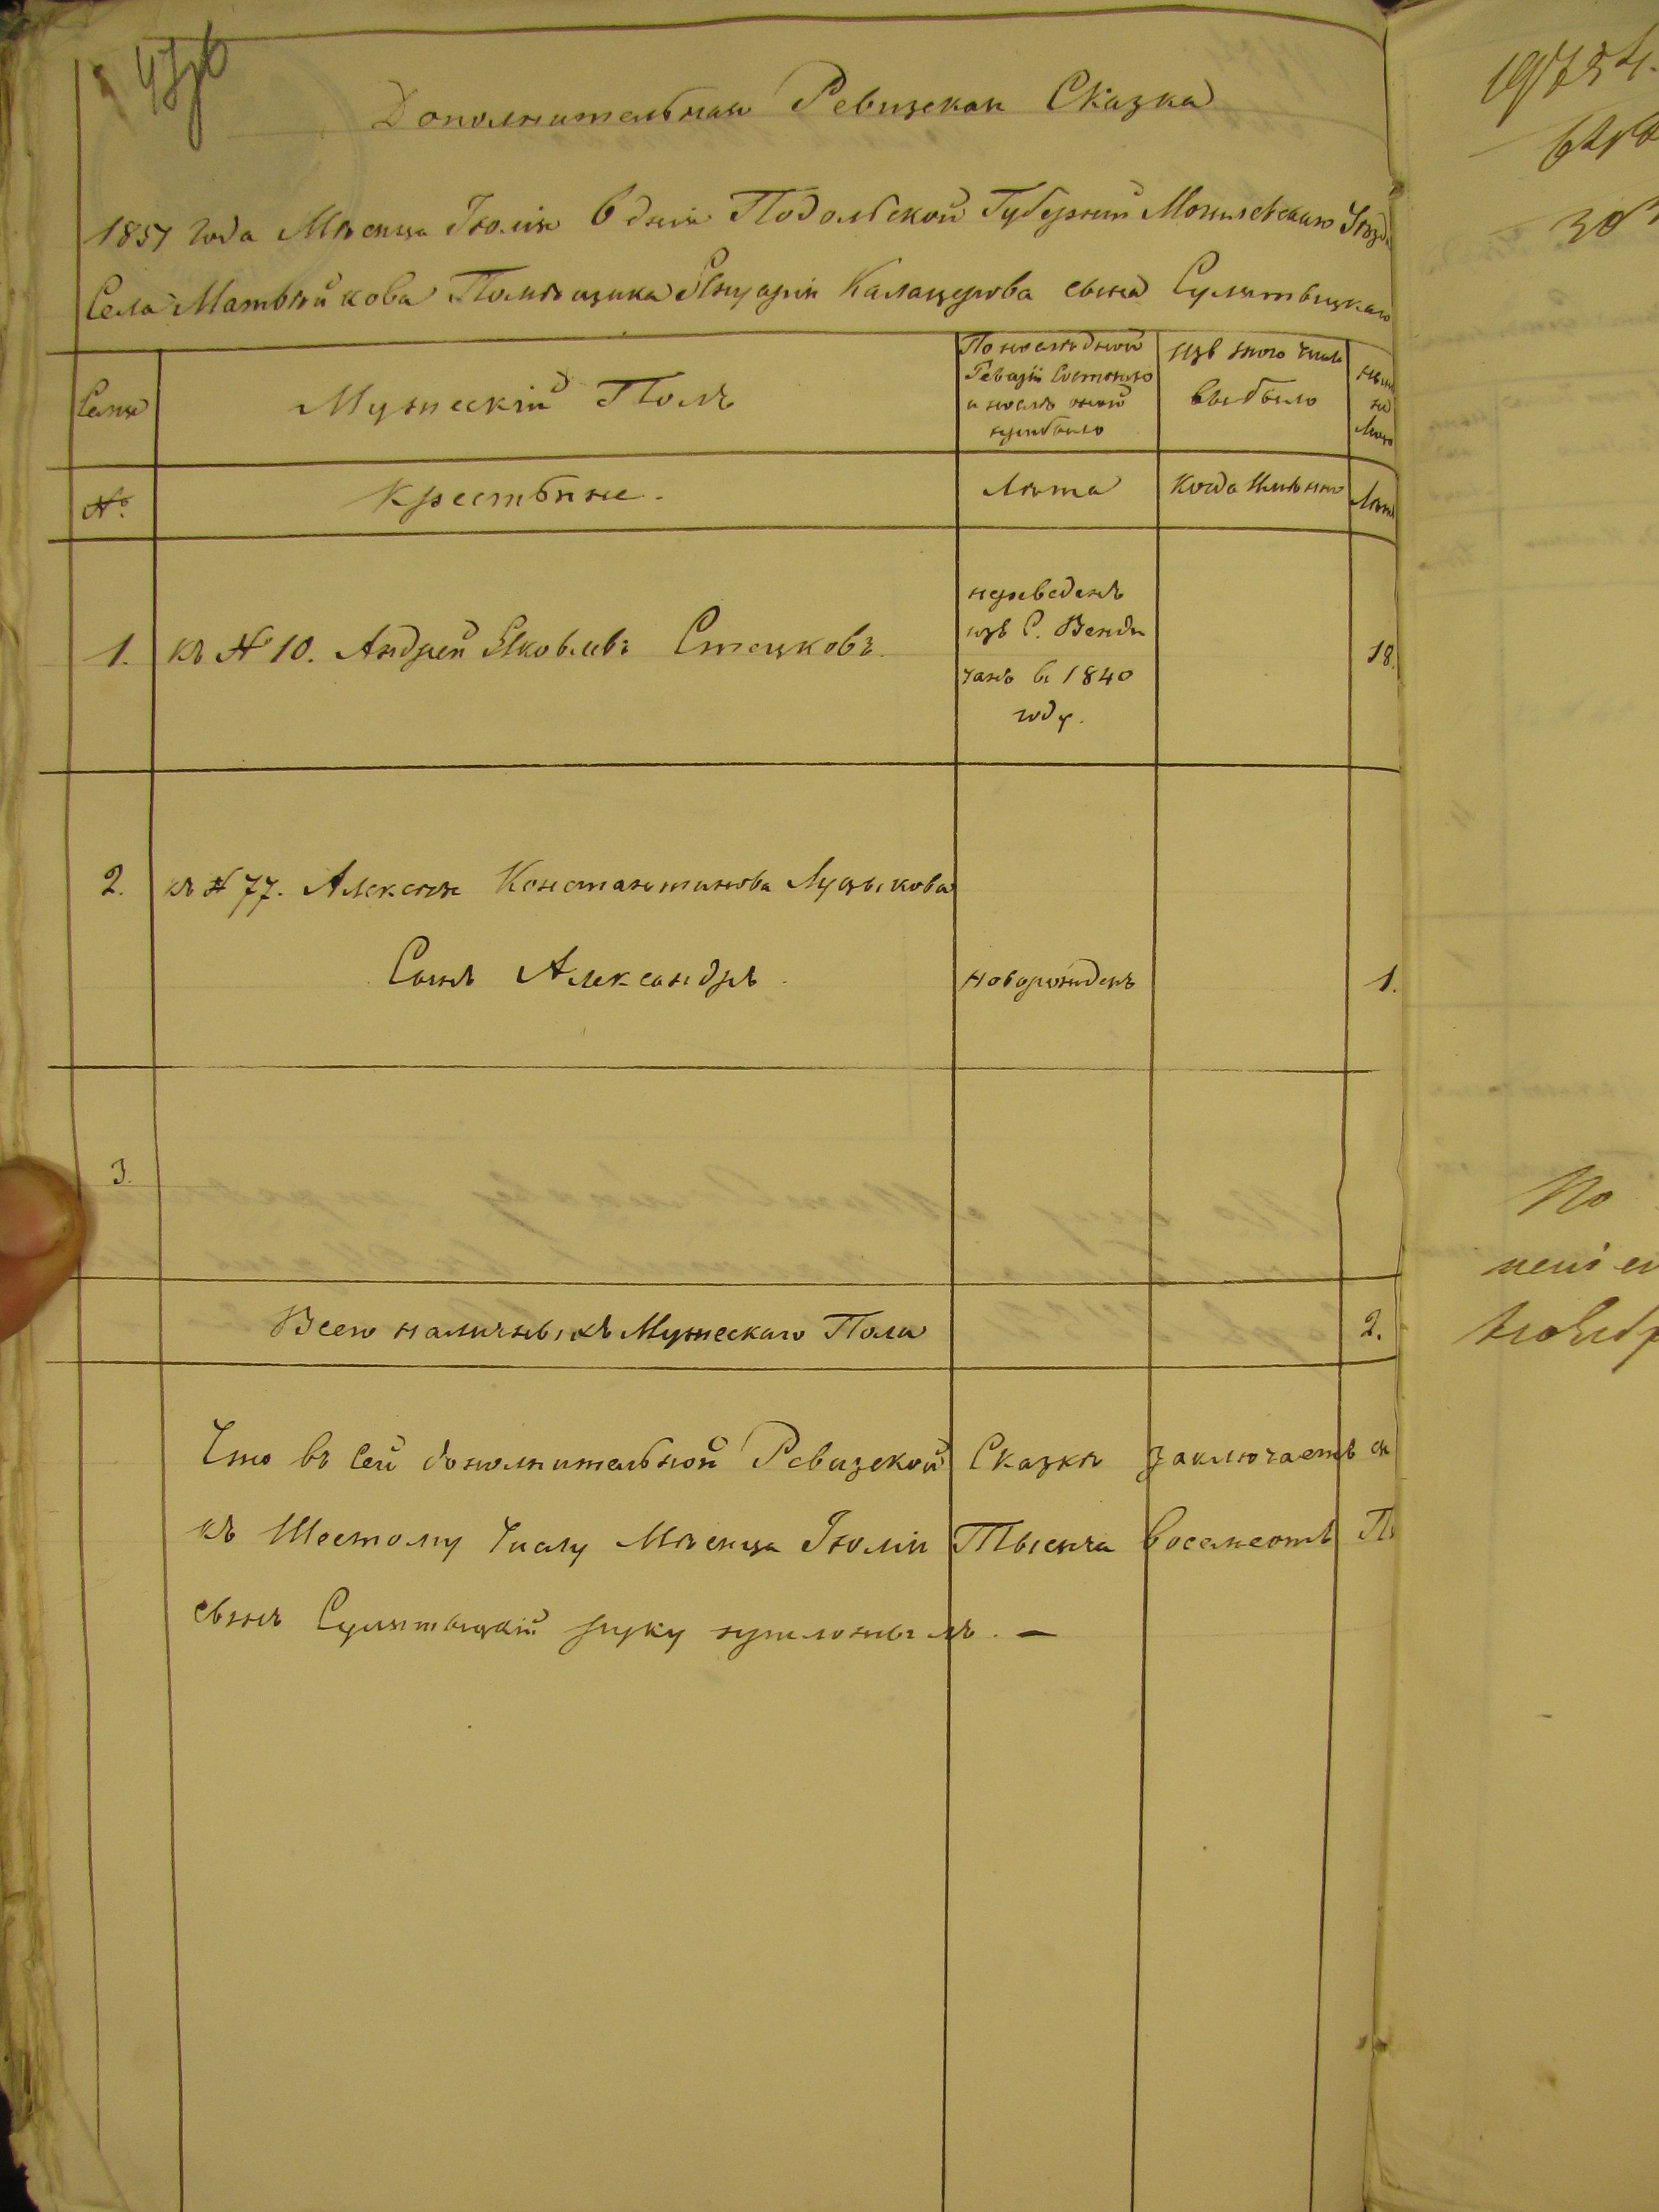 Дополнительная Ревизская Сказка
1857 года Мѣсяца Іюля 6 дня Подольской Губерніи Могилевскаго Уѣзда
Села Матвѣйкова Помѣщика Януарія сына Сулятыцкаго
Семьи
Мужескій Полъ
По последней
Ревизіи Состояло
и послѣ оной
прибыло
Изъ того числа
выбыло
№.
Крестьяне.
Лѣта
Когда Имянно
Лѣта
1.
къ № 10. Андрей Яковлевъ Стецковъ.
переведенъ
изъ С. Венди
чанъ въ 1840
году.
18.
2.
къ № 77. Алексѣя Константинова Луцыкова
Сынъ Александръ.
новорожденъ
1.
3.
Всего наличныхъ Мужескаго Пола
2.
Что въ Сей дополнительной Ревизской Сказкѣ заключаетъ ся
къ Шестому Числу Мѣсяца Іюля Тысяча восемсотъ
сынъ Сулятыцкій руку приложилъ. —